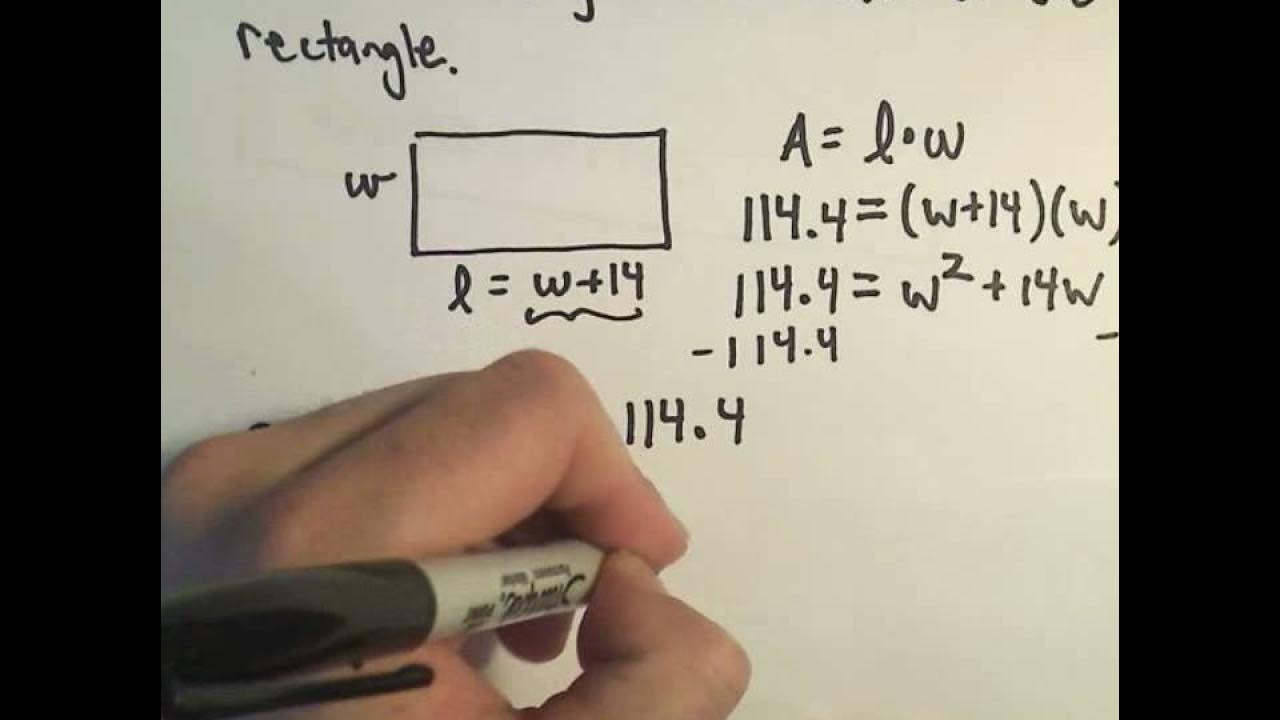 rectangle.
A = l·w
w
114.4 = (w+14)(w)
l = w+14
114.4 = w² + 14w
-114.4 -
114.4